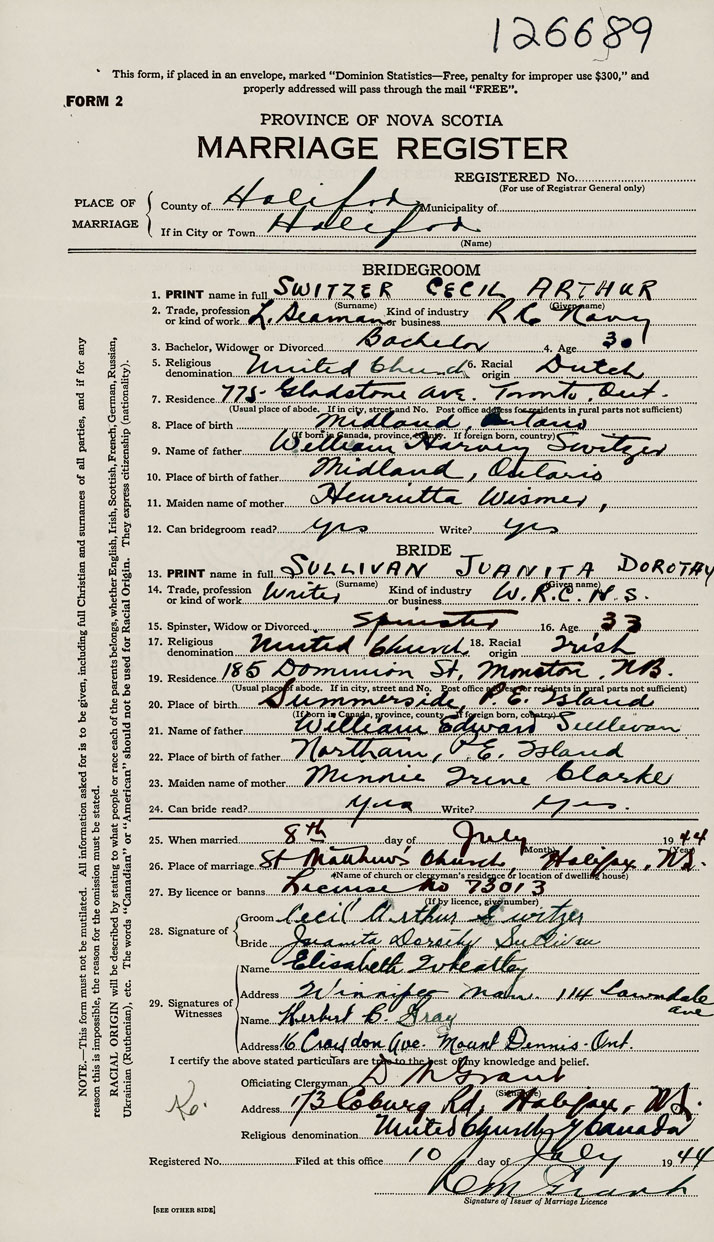 126689
This form, if placed in an envelope, marked "Dominion Statistics—Free, penalty for improper use $300," and
properly addressed will pass through the mail "FREE".
FORM 2
PROVINCE OF NOVA SCOTIA
MARRIAGE REGISTER
REGISTERED No.
(For use of Registrar General only)
PLACE OF MARRIAGE
County of Halifax Municipality of
If in City or Town Halifax
(Name)
BRIDEGROOM
1. PRINT name in full SWITZER CECIL ARTHUR
(Surname) (Given name)
2. Trade, profession or kind of work L. Seaman Kind of industry or business R C Navy
3. Bachelor, Widower or Divorced Bachelor 4. Age 30
5. Religious denomination United Church 6. Racial origin Dutch
7. Residence 775 Gladstone Ave. Toronto, Ont.
(Usual place of abode. If in city, street and No. Post office address for residents in rural parts not sufficient)
8. Place of birth Midland, Ontario
(If born in Canada, province, county. If foreign born, country)
9. Name of father William Harvey Switzer
10. Place of birth of father Midland, Ontario
11. Maiden name of mother Henrietta Wismer,
12. Can bridegroom read? yes Write? yes
BRIDE
13. PRINT name in full SULLIVAN JUANITA DOROTHY
(Surname) (Given name)
14. Trade, profession or kind of work Writer Kind of industry or business W.R.C.N.S.
15. Spinster, Widow or Divorced Spinster 16. Age 33
17. Religious denomination United Church 18. Racial origin Irish
19. Residence 185 Dominion St, Moncton, NB.
(Usual place of abode. If in city, street and No. Post office address for residents in rural parts not sufficient)
20. Place of birth Summerside, P.E. Island
(If born in Canada, province, county. If foreign born, country)
21. Name of father William Edward Sullivan
22. Place of birth of father Northam, P.E. Island
23. Maiden name of mother Minnie Irene Clarke
24. Can bride read? yes Write? yes.
25. When married 8th day of July 1944
(Month) (Year)
26. Place of marriage St Matthews Church, Halifax, N.S.
(Name of church or clergyman's residence or location of dwelling house)
27. By licence or banns License No 73013
(If by licence, give number)
28. Signature of
Groom Cecil Arthur Switzer
Bride Juanita Dorothy Sullivan
29. Signatures of Witnesses
Name Elisabeth Wheatley
Address Winnipeg Man. 114 Lawndale ave
Name Herbert B. Gray
Address 16 Craydon Ave. Mount Dennis - Ont.
I certify the above stated particulars are true to the best of my knowledge and belief.
Officiating Clergyman D M Grant
(Signature)
Address 173 Coburg Rd, Halifax, N.S.
Religious denomination United Church of Canada
Registered No. Filed at this office 10 day of July 1944
Signature of Issuer of Marriage Licence
[SEE OTHER SIDE]
NOTE.—This form must not be mutilated. All information asked for is to be given, including full Christian and surnames of all parties, and if for any
reason this is impossible, the reason for the omission must be stated.
RACIAL ORIGIN will be described by stating to what people or race each of the parents belongs, whether English, Irish, Scottish, French, German, Russian,
Ukrainian (Ruthenian), etc. The words "Canadian" or "American" should not be used for Racial Origin. They express citizenship (nationality).